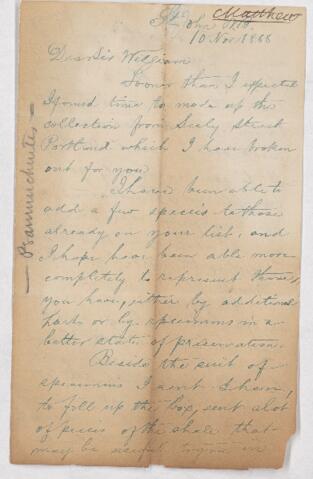 Matthew
St John N.B.
10 Nov 1888
Dear Sir William
Sooner than I expected
I found time to made up the
collection from Sealy Street
Portland which I have broken
out for you
I have been able to
add a few species to those
already on your list, and
I hope have been able more
completely to represent those,
you have, either by additional
parts or by specimens in a
better state of preservation.
Beside the suit of
specimens I sent I have,
to fill up the box, sent a lot
of pieces of the shale that
may be useful to you in